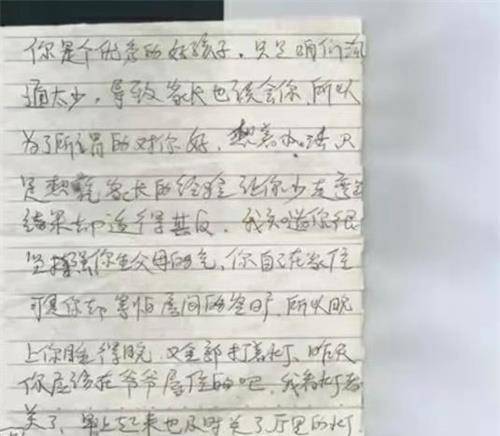 你是个优秀的好孩子，只是咱们沟
通太少，导致家长也误会你，所以
为了所谓的对你好，想着办法只
是想凭家长的经验让你少走弯路
结果却适得其反，我知道你很
坚强你生父母的气，你自己在家住
可是你却害怕房间的窗户，所以晚
上你睡得晚，又全部打着灯，昨天
你应该在爷爷屋住的吧，我看灯都
关了，早上起来也及时关了厅里的灯